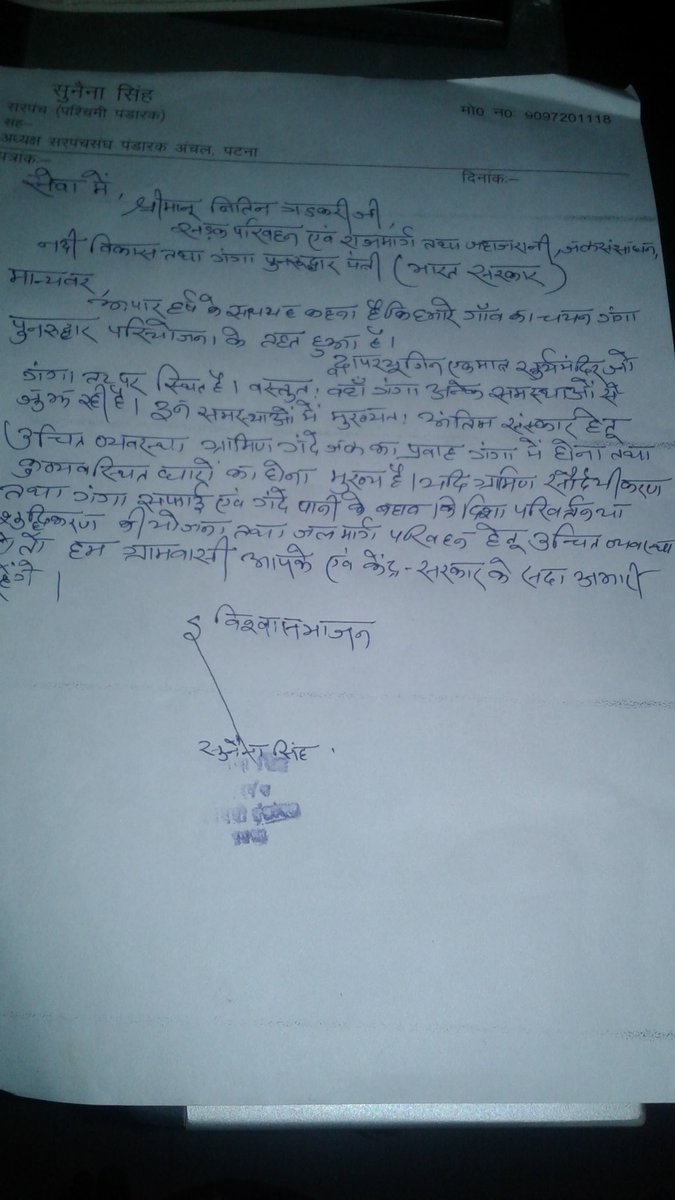 सुनैना सिंह
सरपंच (पश्चिमी पंडारक)
सह-
अध्यक्ष सरपंचसंघ पंडारक अंचल, पटना
मो० न० 9097201118
पत्रांक:-
दिनांक:-
सेवा में,
श्रीमान् नितिन गडकरी जी,
सड़क परिवहन एवं राजमार्ग तथा जहाजरानी, जलसंसाधन,
नदी विकास तथा गंगा पुनरुद्धार मंत्री (भारत सरकार)
मान्यवर
अपार हर्ष के साथ यह कहना है कि हमारे गाँव का चयन गंगा
पुनरुद्धार परियोजना के तहत हुआ है।
द्वापरयुगिन एकमात्र सुर्यमंदिर जो
गंगा तट पर स्थित है। वस्तुत: यहाँ गंगा अनेक समस्याओं से
जुझ रही है। इन समस्याओं में मुख्यत: अंतिम संस्कार हेतू
उचित व्यवस्था ग्रामिण गंदे जल का प्रवाह गंगा में होना तथा
कुव्यवस्थित घाटों का होना मुख्य है। यदि ग्रामिण सौंदर्यीकरण
तथा गंगा सफाई एवं गंदे पानी के बहाव कि दिशा परिवर्तन या
शुद्धिकरण की योजना तथा जलमार्ग परिवहन हेतू उचित व्यवस्था
तो हम ग्रामवासी आपके एवं केंद्र-सरकार के सदा अभारी
रहेंगे।
विश्वासभाजन
सुनैना सिंह